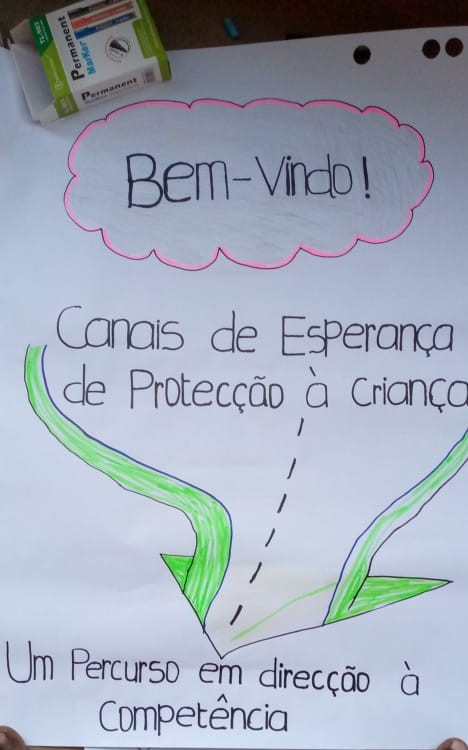 Permanent
Marker
Permanent
Bem-Vindo!
Canais de Esperança
de Protecção à Criança
Um Percurso em direcção à
Competência